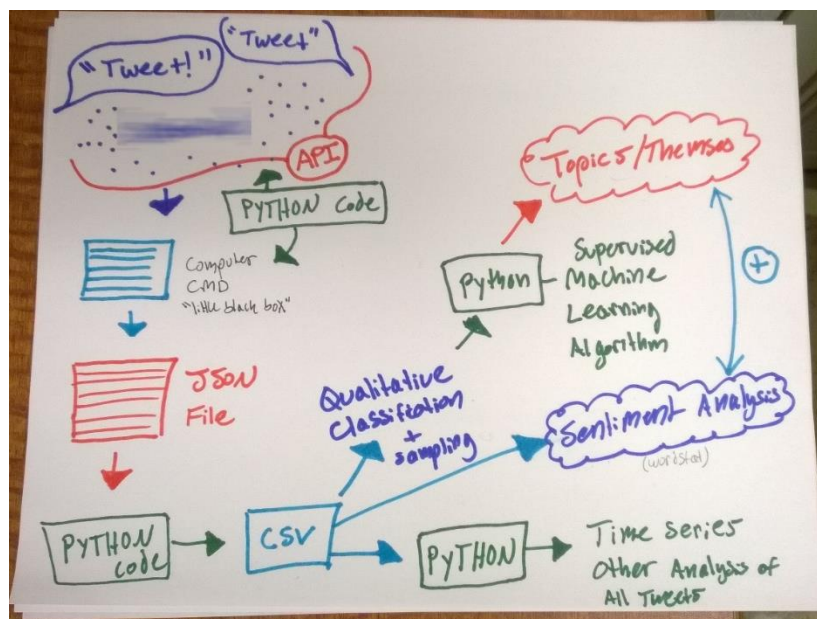 "Tweet!"
"Tweet"
API
PYTHON Code
Computer
CMD
"little black box"
JSON
File
PYTHON
code
CSV
Qualitative
Classifiation
+
sampling
Python
Supervised
Machine
Learning
Algorithm
Topics/Themses
+
Sentiment Analysis
(wordstat)
PYTHON
Time series
Other Analysis of
All Tweets